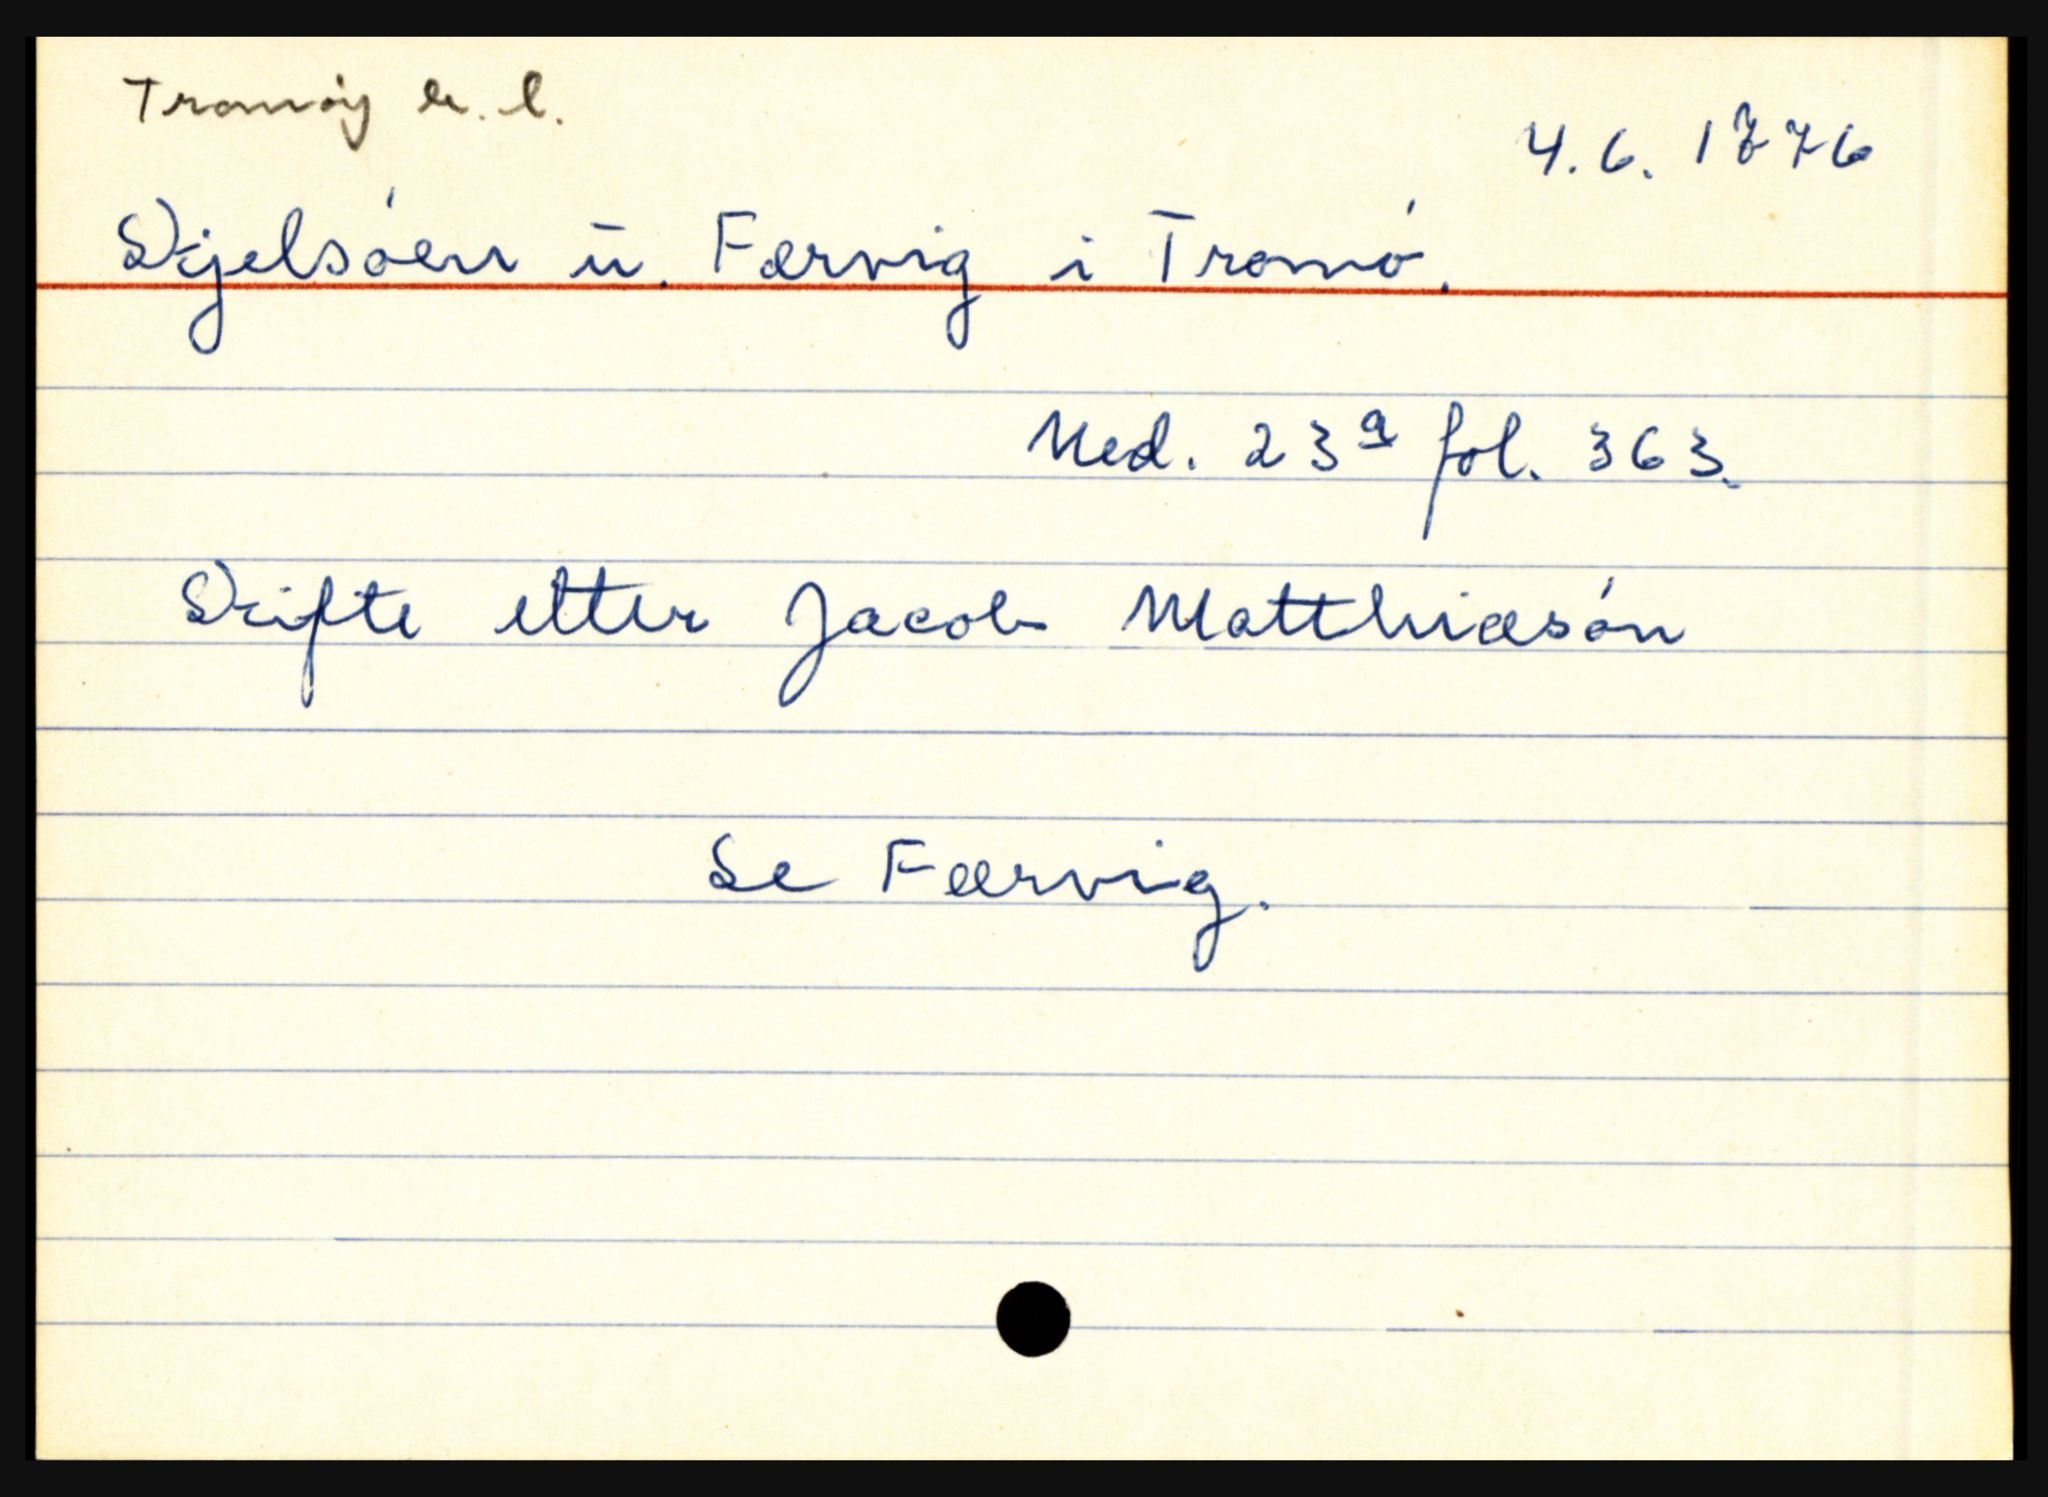 Tromöy h. l.
4.6. 1776
Skjelsöen u. Færvig i Tromö.
Ned. 23ª fol. 363.
Skifte etter Jacob Matthiæsön
Se Færvig.